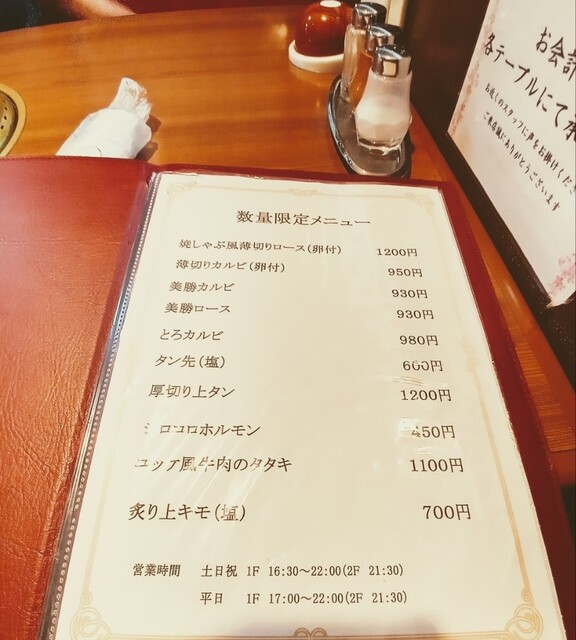 お会計
各テーブルにて承
お近くのスタッフに声をお掛けくださ
ご来店誠にありがとうございます
数量限定メニュー
焼しゃぶ風薄切りロース(卵付) 1200円
薄切りカルビ(卵付) 950円
美勝カルビ 930円
美勝ロース 930円
とろカルビ 980円
タン先(塩) 600円
厚切り上タン 1200円
コロコロホルモン 450円
ユッケ風牛肉のタタキ 1100円
炙り上キモ(塩) 700円
営業時間 土日祝 1F 16:30～22:00(2F 21:30)
平日 1F 17:00～22:00(2F 21:30)